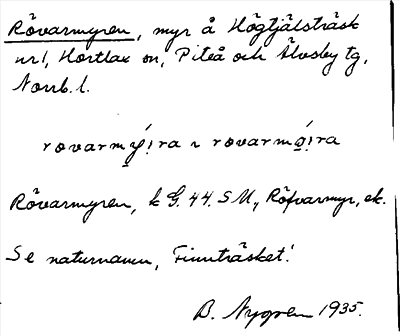 Rövarmyren, myr å Högtjälsträsk
nr 1, Hortlax sn, Piteå och Älvsby tg,
Norrb. l.
rovarmy̆́!ra ~ rovarmǿ!ra
Rövarmyren, k G. 44. SM, Röfvarmyr, ek.
Se naturnamn, Finnträsket!
B. Nygren 1935.